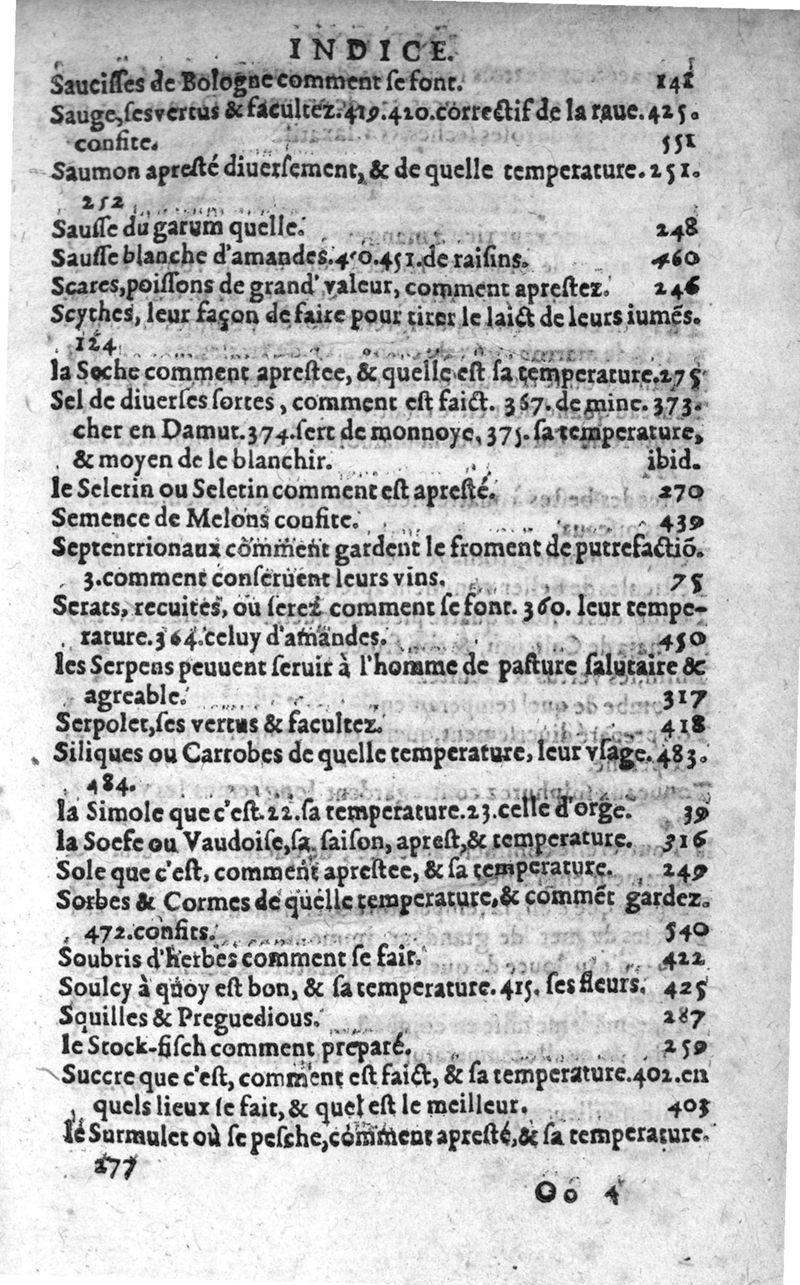 INDICE.
Saucisses de Bologne comment se font. 141
Sauge, ses vertus & facultez. 419. 420. correctif de la raue. 425.
confite. 551
Saumon apresté diuersement, & de quelle temperature. 251.
252
Sausse du garum quelle. 248
Sausse blanche d'amandes. 450. 451. de raisins. 460
Scares, poissons de grand' valeur, comment aprestez. 246
Scythes, leur façon de faire pour tirer le laict de leurs iumẽs.
124
la Seche comment aprestee, & quelle est sa temperature. 275
Sel de diuerses sortes, comment est faict. 367. de mine. 373.
cher en Damut. 374. sert de monnoye, 375. sa temperature,
& moyen de le blanchir. ibid.
le Selerin ou Seletin comment est apresté. 270
Semence de Melons confite. 439
Septentrionaux comment gardent le froment de putrefactiõ.
3. comment conseruent leurs vins. 75
Serats, recuites, ou serez comment se font. 360. leur tempe-
rature. 364. celuy d'amandes. 450
les Serpens peuuent seruir à l'homme de pasture salutaire &
agreable. 317
Serpolet, ses vertus & facultez. 418
Siliques ou Carrobes de quelle temperature, leur vsage. 483.
484.
la Simole que c'est. 22. sa temperature. 23. celle d'orge. 39
la Soefe ou Vaudoise, sa saison, aprest, & temperature. 316
Sole que c'est, comment aprestee, & sa temperature. 249
Sorbes & Cormes de quelle temperature, & commẽt gardez.
472. confits. 540
Soubris d'herbes comment se fait. 422
Soulcy à quoy est bon, & sa temperature. 415. ses fleurs. 425
Squilles & Preguedious. 287
le Stock-fisch comment preparé. 259
Succre que c'est, comment est faict, & sa temperature. 402. en
quels lieux se fait, & quel est le meilleur. 403
le Surmulet où se pesche, comment apresté, & sa temperature.
277
Oo 4